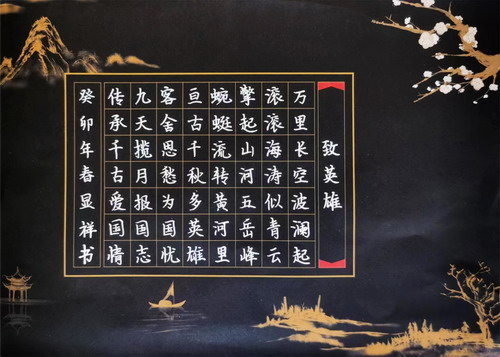 致英雄
万里长空波澜起
滚滚海涛似青云
擎起山河五岳峰
蜿蜓流转黄河里
亘古千秋多英雄
客舍思愁为国忧
九天揽月报国志
传承千古爱国情
癸卯年春显祥书